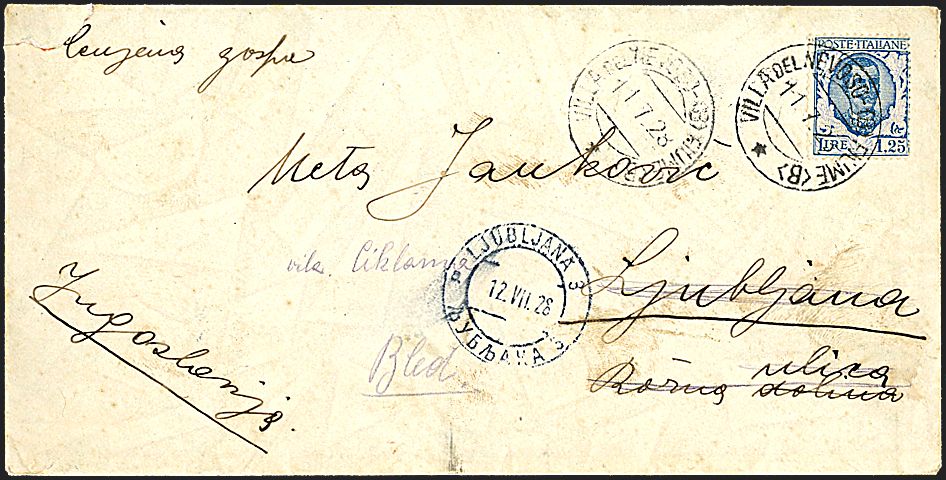 Cenjena gospa
Meta Janković
Ljubljana
Rožna ulica
dolina
Jugoslavija.
vila Ciklama
Bled.
POSTE·ITALIANE
LIRE 1,25
VILLA DEL NEVOSO FIUME (B)
11.7
VILLA DEL NEVOSO FIUME (B)
11.7.28
LJUBLJANA 3
12.VII.28
ЉУБЉАНА 3